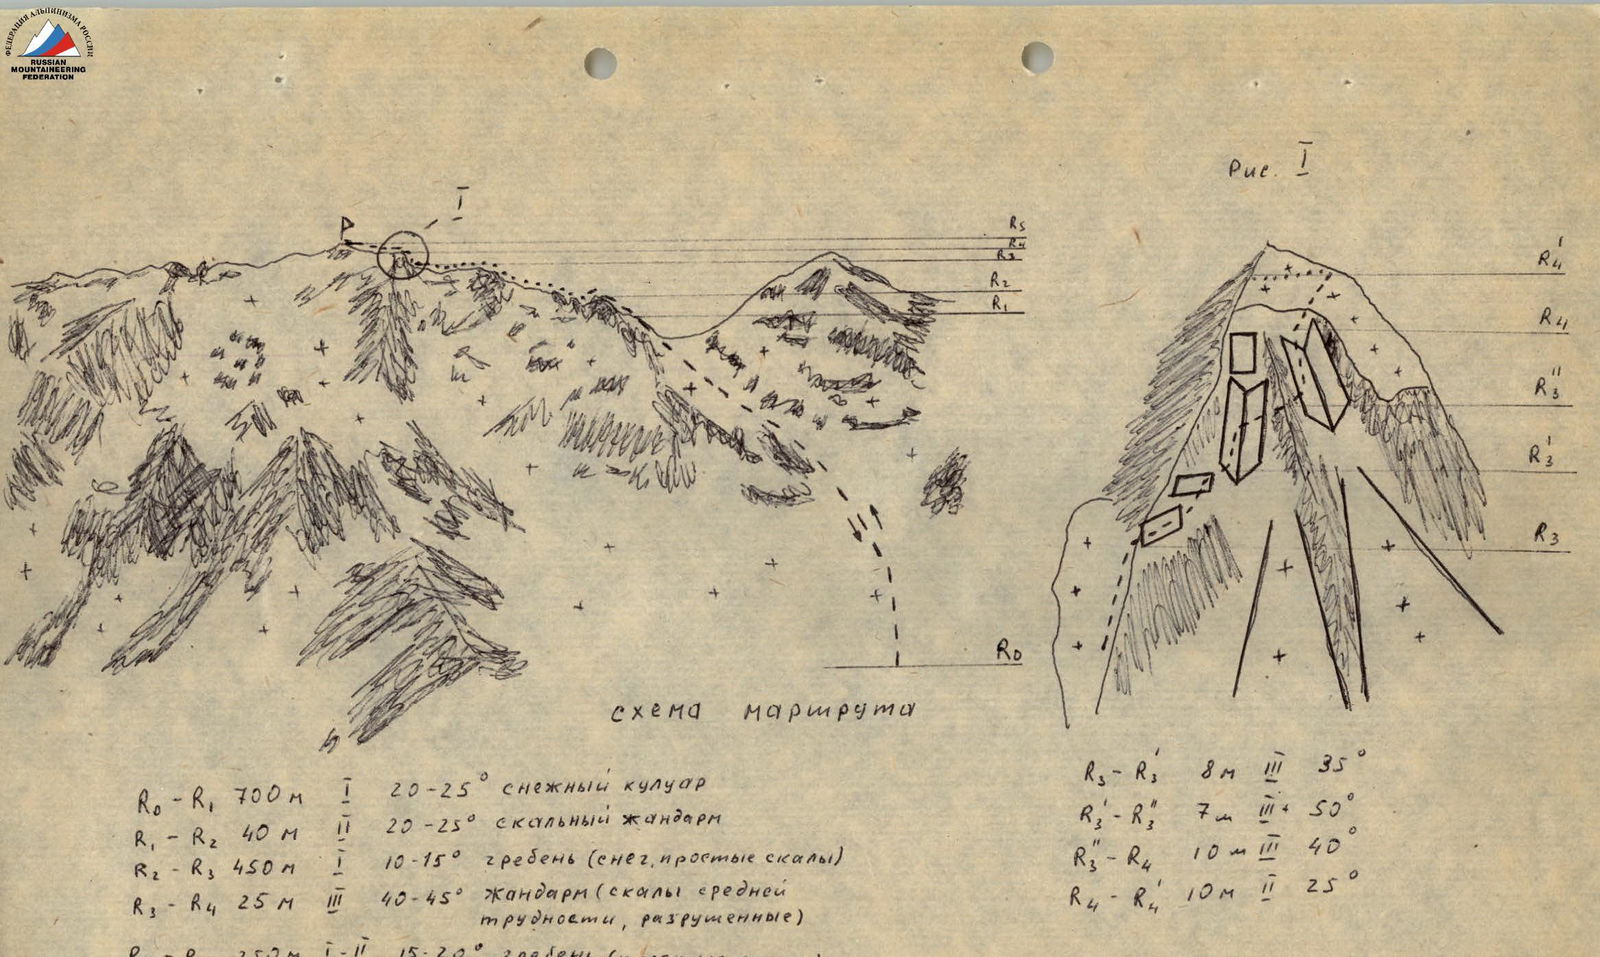 ФЕДЕРАЦИЯ АЛЬПИНИЗМА РОССИИ
RUSSIAN
MOUNTAINEERING
FEDERATION
Рис. I
I
R5
R4
R3
R2
R1
R0
R4'
R4
R3''
R3'
R3
схема маршрута
R0 - R1 700 м I 20-25° снежный кулуар
R1 - R2 40 м II 20-25° скальный жандарм
R2 - R3 450 м I 10-15° гребень (снег, простые скалы)
R3 - R4 25 м III 40-45° жандарм (скалы средней
трудности, разрушенные)
250 м I-II 15-20° гребень
R3 - R3' 8 м III 35°
R3' - R3'' 7 м III+ 50°
R3'' - R4 10 м III 40°
R4 - R4' 10 м II 25°